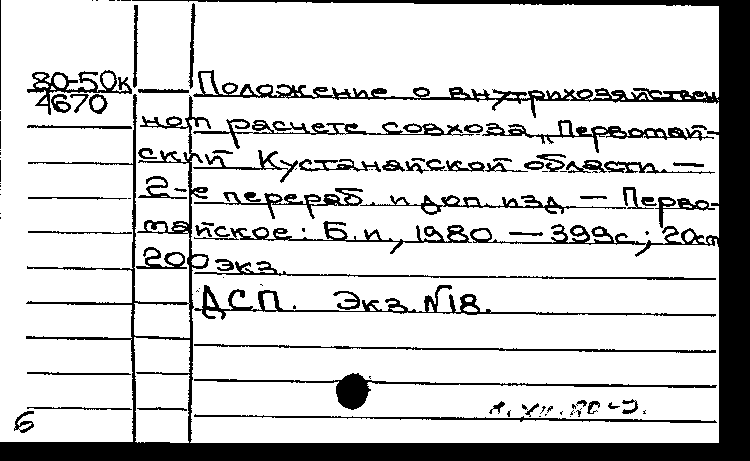 80-50к Положение о внутрихозяйствен
4670
ном расчете совхоза „Первомай-
ский Кустанайской области. —
2-е перераб. и доп. изд. — Перво-
майское: Б.и., 1980. — 399с.; 20см
200 экз.
ДСП. Экз. №18.
6